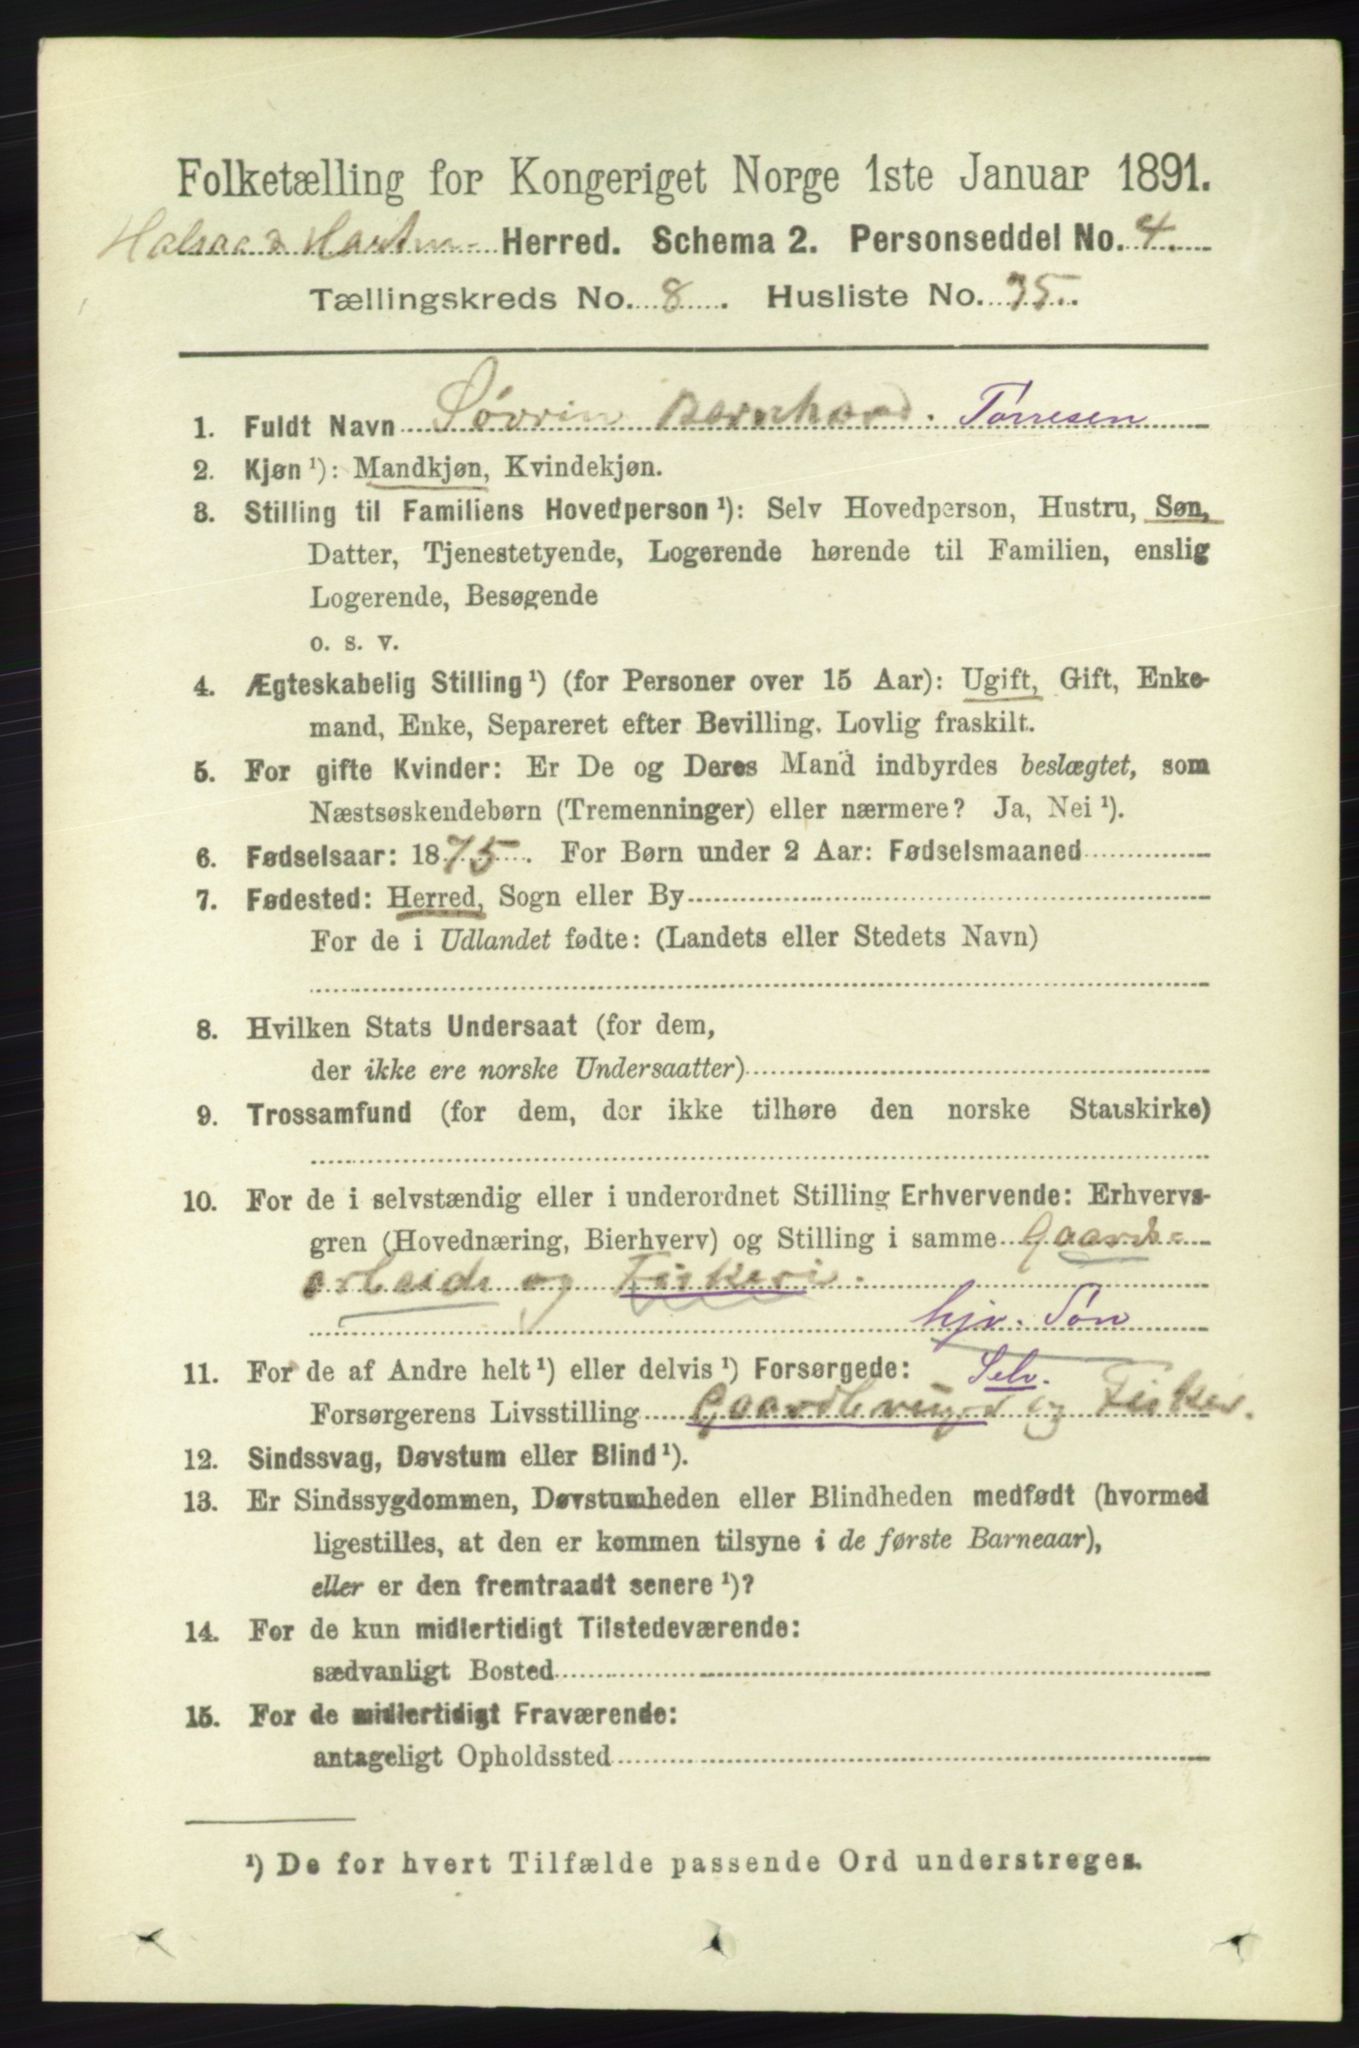 Folketælling for Kongeriget Norge 1ste Januar 1891.
Halsaa & Hartm. Herred. Schema 2. Personseddel No. 4.
Tællingskreds No. 8. Husliste No. 35.
1. Fuldt Navn Sövrin Bernhard. Torresen
2. Kjøn ¹): Mandkjøn, Kvindekjøn.
3. Stilling til Familiens Hovedperson ¹): Selv Hovedperson, Hustru, Søn,
Datter, Tjenestetyende, Logerende hørende til Familien, enslig
Logerende, Besøgende
o. s. v.
4. Ægteskabelig Stilling ¹) (for Personer over 15 Aar): Ugift, Gift, Enke-
mand, Enke, Separeret efter Bevilling. Lovlig fraskilt.
5. For gifte Kvinder: Er De og Deres Mand indbyrdes beslægtet, som
Næstsøskendebørn (Tremenninger) eller nærmere? Ja, Nei ¹).
6. Fødselsaar: 1875. For Børn under 2 Aar: Fødselsmaaned
7. Fødested: Herred, Sogn eller By
For de i Udlandet fødte: (Landets eller Stedets Navn)
8. Hvilken Stats Undersaat (for dem,
der ikke ere norske Undersaatter)
9. Trossamfund (for dem, der ikke tilhøre den norske Statskirke)
10. For de i selvstændig eller i underordnet Stilling Erhvervende: Erhvervs-
gren (Hovednæring, Bierhverv) og Stilling i samme Gaards-
arbeide og Fiskeri.
hjv. Søn
11. For de af Andre helt ¹) eller delvis ¹) Forsørgede: Selv.
Forsørgerens Livsstilling Gaardbruger og Fisker.
12. Sindssvag, Døvstum eller Blind ¹).
13. Er Sindssygdommen, Døvstumheden eller Blindheden medfødt (hvormed
ligestilles, at den er kommen tilsyne i de første Barneaar),
eller er den fremtraadt senere ¹)?
14. For de kun midlertidigt Tilstedeværende:
sædvanligt Bosted
15. For de midlertidigt Fraværende:
antageligt Opholdssted
¹) De for hvert Tilfælde passende Ord understreges.